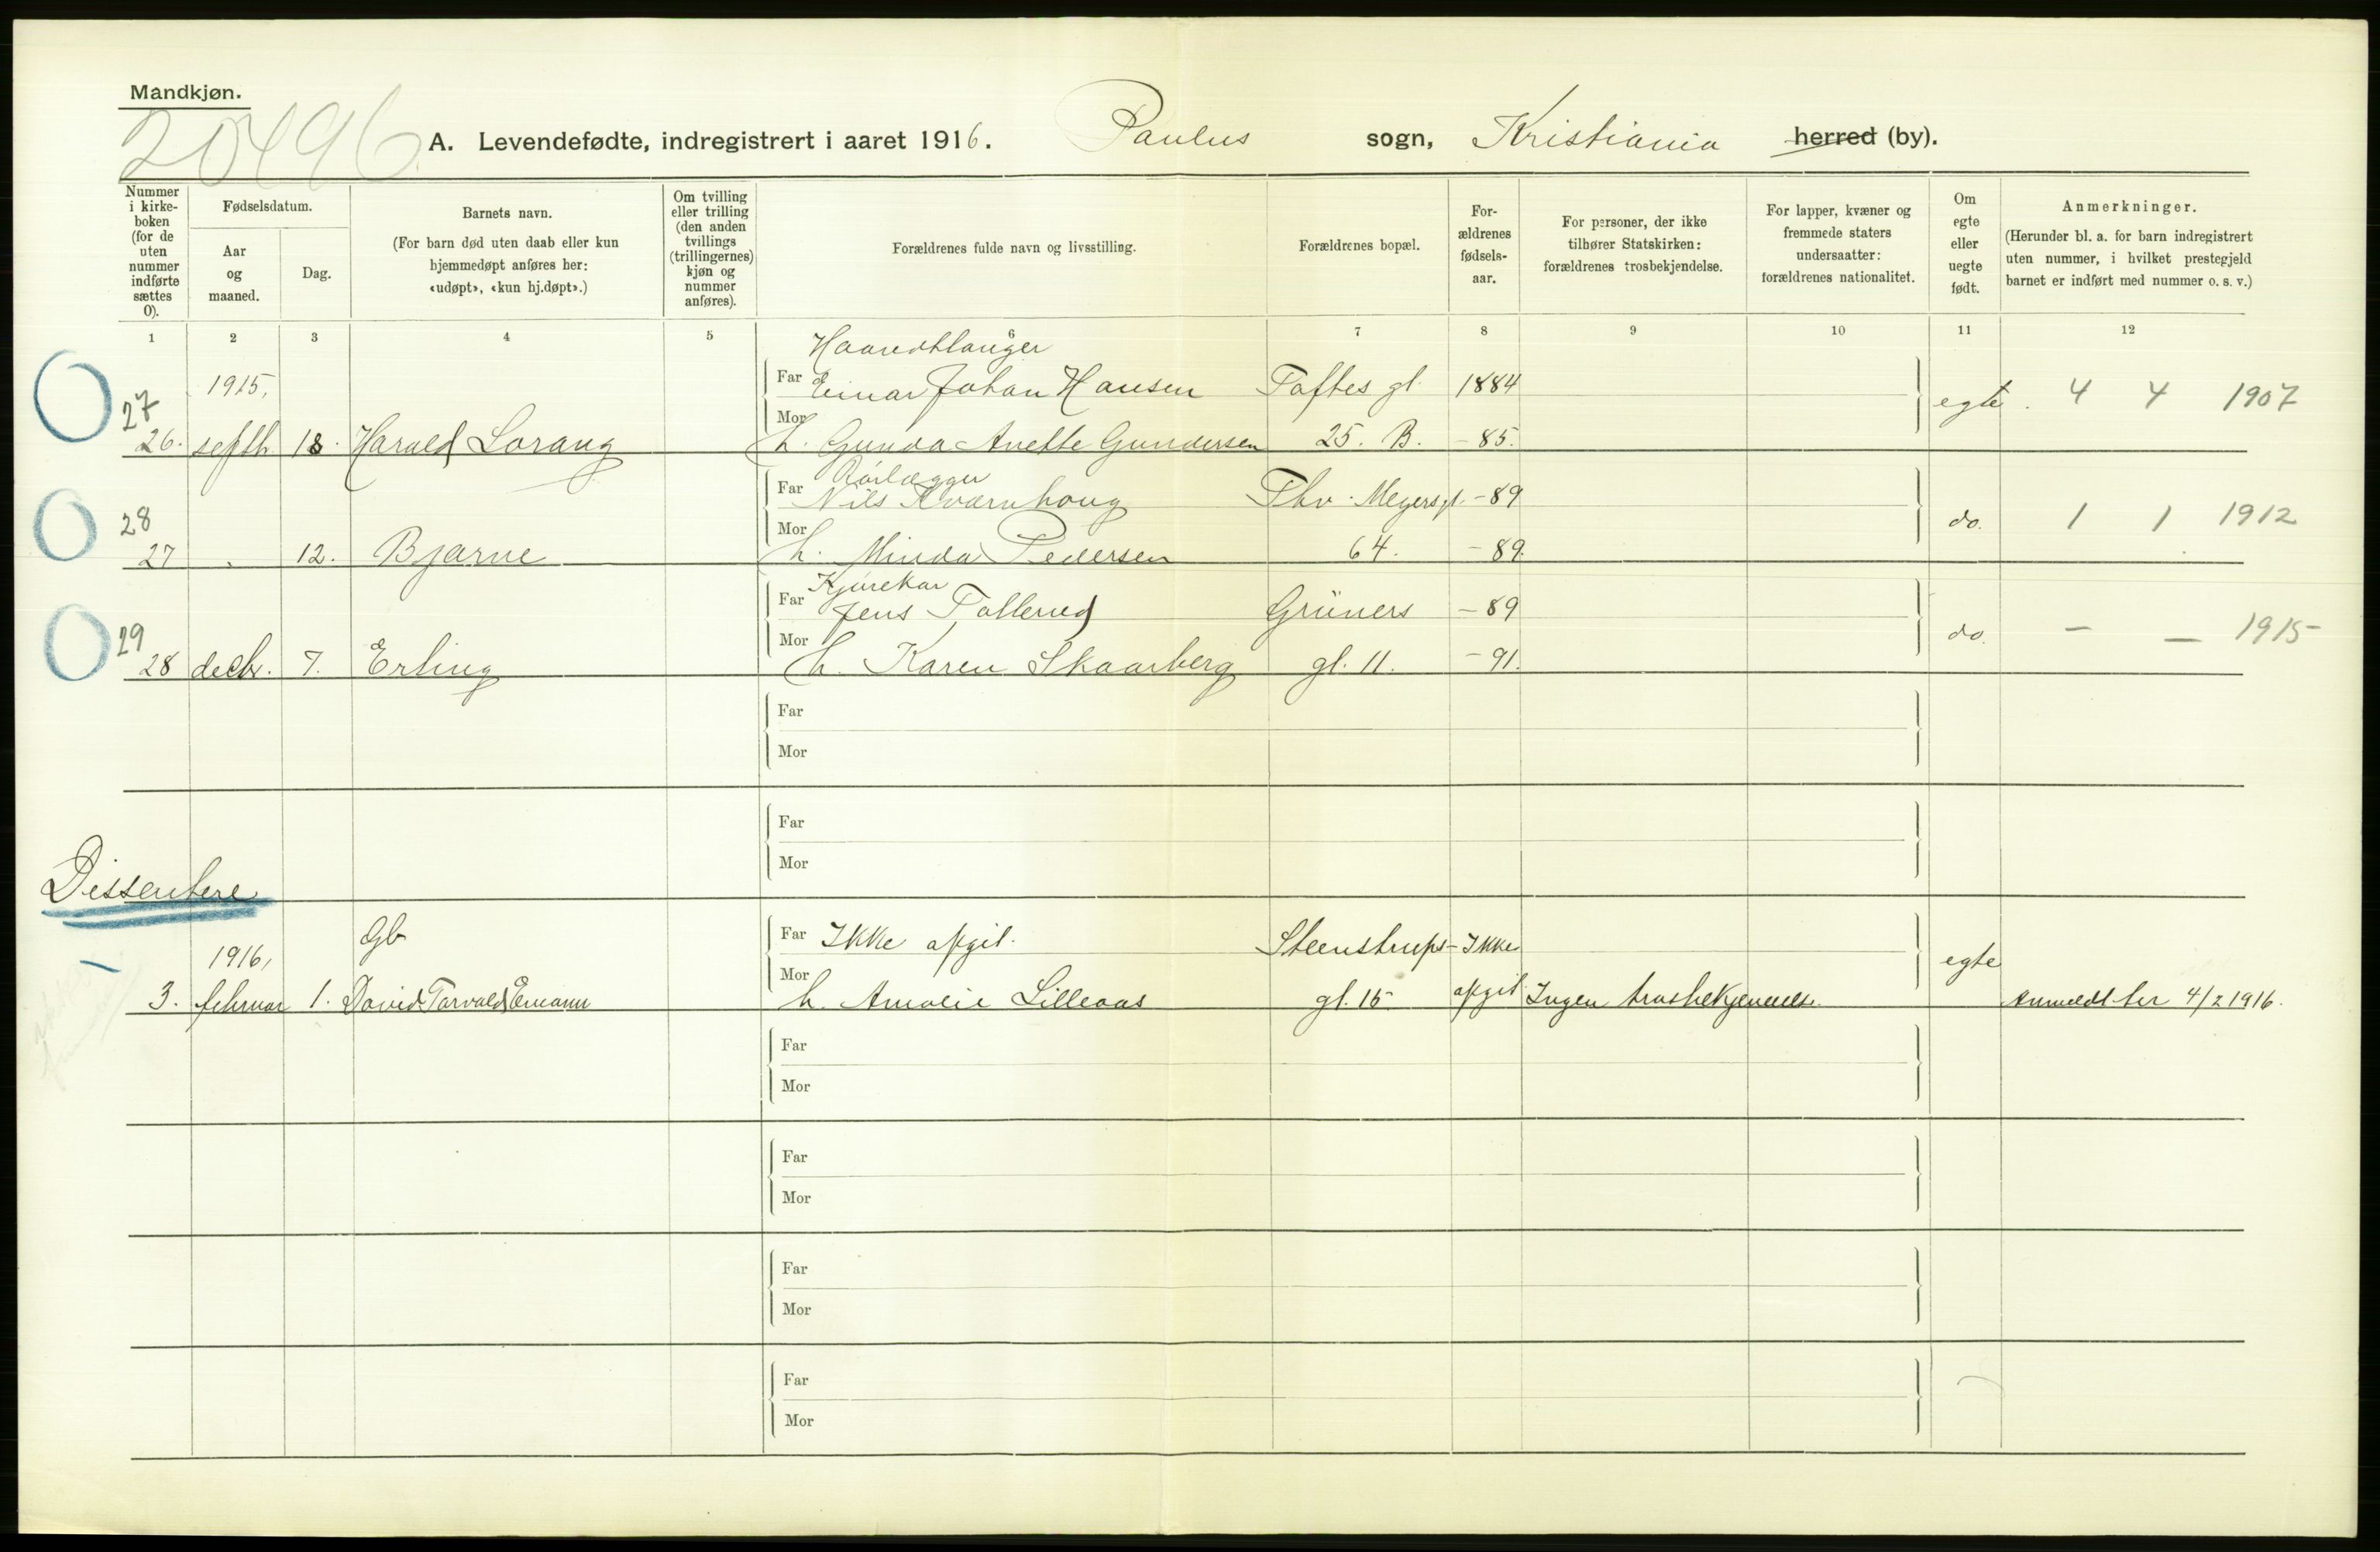 Mandkjøn.
20496
A. Levendefødte, indregistrert i aaret 1916. Paulus sogn, Kristiania herred (by).
Nummer i kirke-boken (for de uten nummer indførte sættes 0).
Fødselsdatum.
Aar og maaned.
Dag.
Barnets navn.
(For barn død uten daab eller kun hjemmedøpt anføres her: «udøpt», «kun hj.døpt».)
Om tvilling eller trilling (den anden tvillings (trillingernes) kjøn og nummer anføres).
Forældrenes fulde navn og livsstilling.
Forældrenes bopæl.
For-ældrenes fødsels-aar.
For personer, der ikke tilhører Statskirken: forældrenes trosbekjendelse.
For lapper, kvæner og fremmede staters undersaatter: forældrenes nationalitet.
Om egte eller uegte født.
Anmerkninger.
(Herunder bl. a. for barn indregistrert uten nummer, i hvilket prestegjeld barnet er indført med nummer o. s. v.)
1 2 3 4 5 6 7 8 9 10 11 12
Haandtlanger
27 1915, Far Einar Johan Hansen Toftes gt. 1884 egte. 4 4 1907
26. septb. 18. Harald Lorang Mor h. Gunda Anette Gundersen 25. B. -85.
Rørlægger
28 Far Nils Kværnhoug Thv. Meyersgt. -89 do. 1 1 1912
27 . 12. Bjarne Mor h. Minda Pedersen 64. -89.
Kjørekar
29 Far Jens Tollerud Grüners -89 do. - - 1915
28 decbr. 7. Erling Mor h. Karen Skaarberg gt. 11. -91.
Far
Mor
Far
Mor
Dissentere
1916, Gb Far Ikke opgit. Steenstrups- Ikke egte
3. februar 1. David Torvald Emann Mor h. Amalie Lilleaas gt. 15 opgit Ingen trosbekjennelse. Anmeldt her 4/2 1916.
Far
Mor
Far
Mor
Far
Mor
Far
Mor